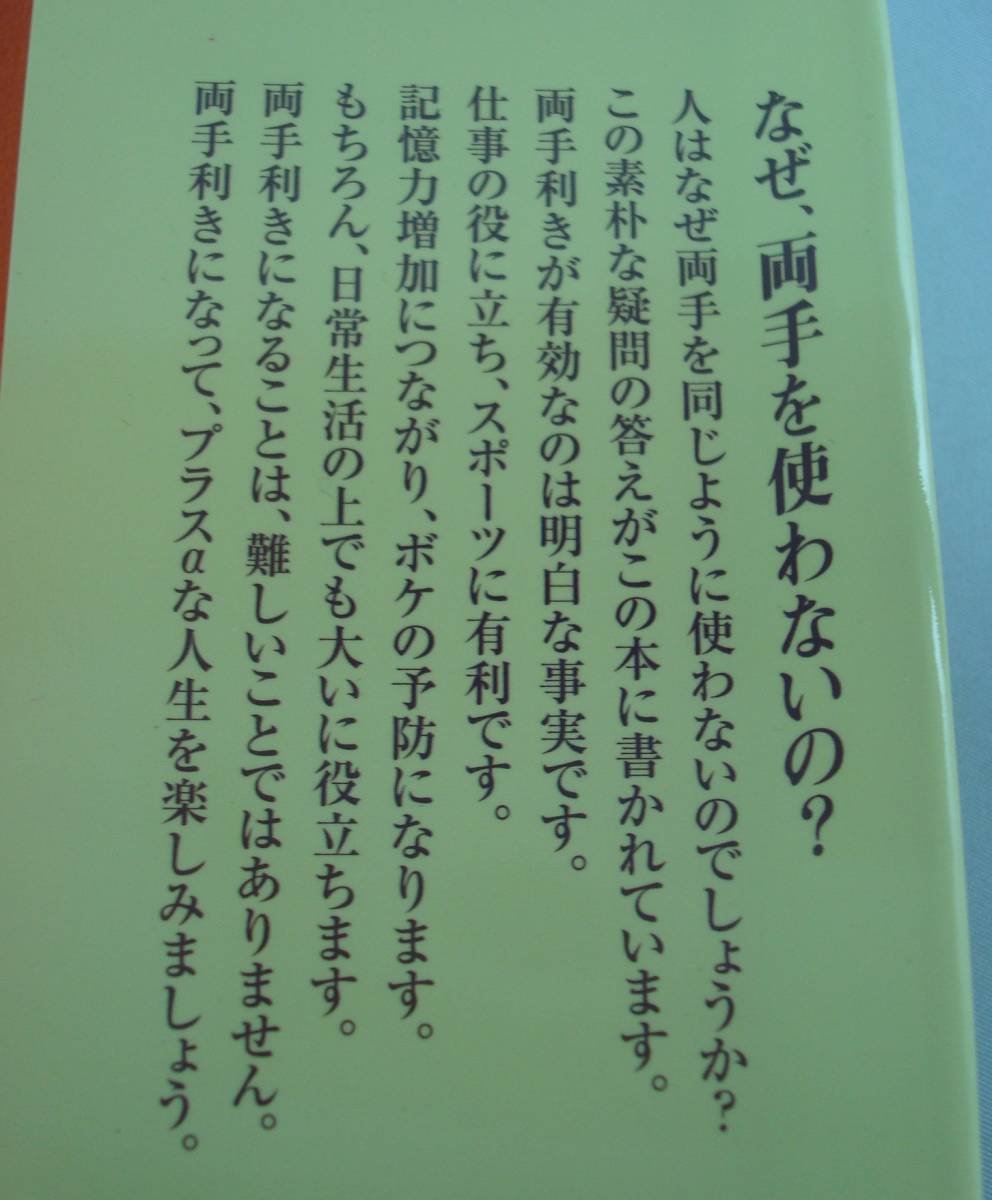 なぜ、両手を使わないの？
人はなぜ両手を同じように使わないのでしょうか？
この素朴な疑問の答えがこの本に書かれています。
両手利きが有効なのは明白な事実です。
仕事の役に立ち、スポーツに有利です。
記憶力増加につながり、ボケの予防になります。
もちろん、日常生活の上でも大いに役立ちます。
両手利きになることは、難しいことではありません。
両手利きになって、プラスαな人生を楽しみましょう。